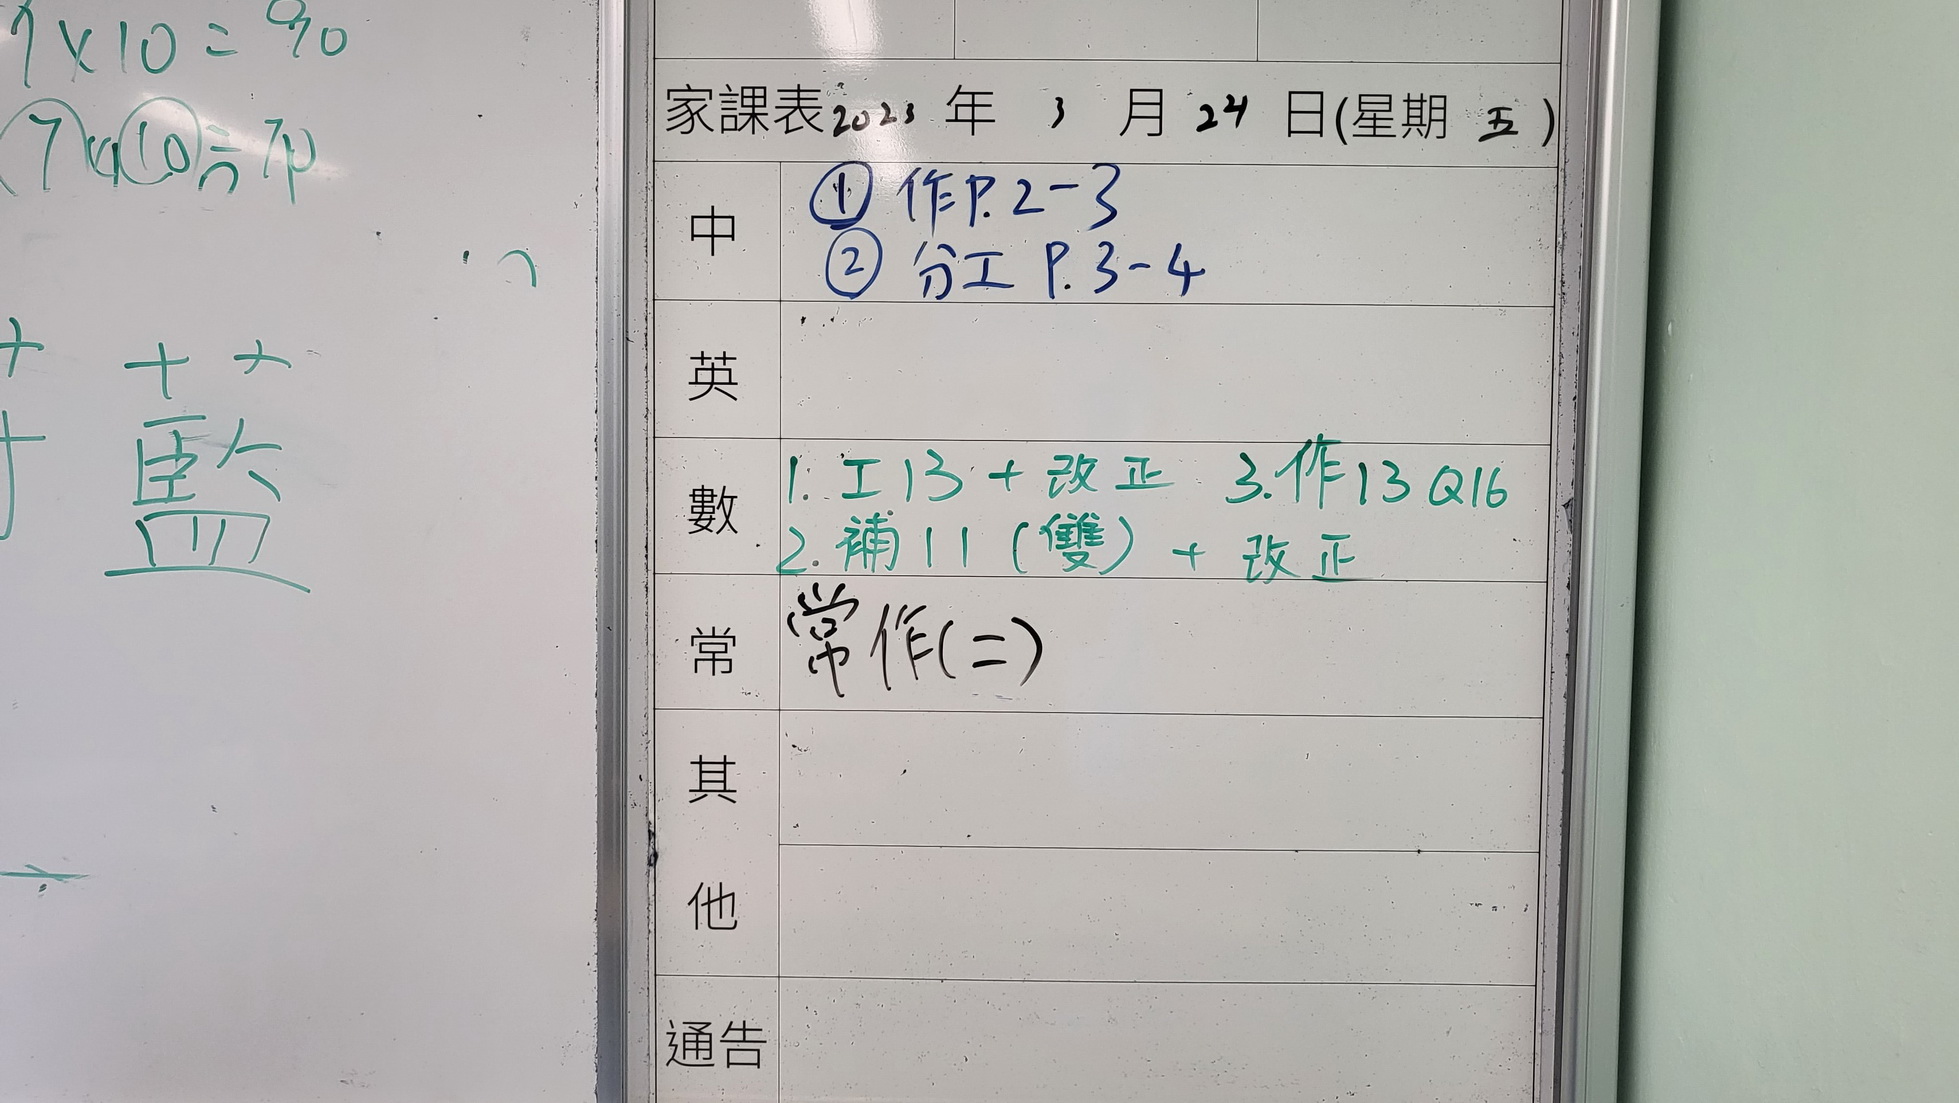 9×10=90
7×10=70
藍
家課表2023年3月24日(星期五)
中
① 作P.2-3
② 分工 P.3-4
英
數
1. 工13 + 改正 3.作13 Q16
2. 補11(雙) + 改正
常
常作(二)
其
他
通告